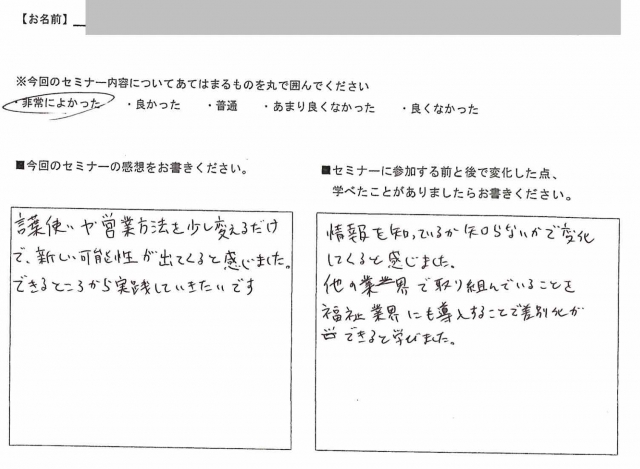 【お名前】
※今回のセミナー内容についてあてはまるものを丸で囲んでください
・非常によかった ・良かった ・普通 ・あまり良くなかった ・良くなかった
■今回のセミナーの感想をお書きください。
言葉使いや営業方法を少し変えるだけ
で、新しい可能性が出てくると感じました。
できるところから実践していきたいです
■セミナーに参加する前と後で変化した点、
学べたことがありましたらお書きください。
情報を知っているか知らないかで変化
してくると感じました。
他の業界で取り組んでいることを
福祉業界にも導入することで差別化が
できると学びました。